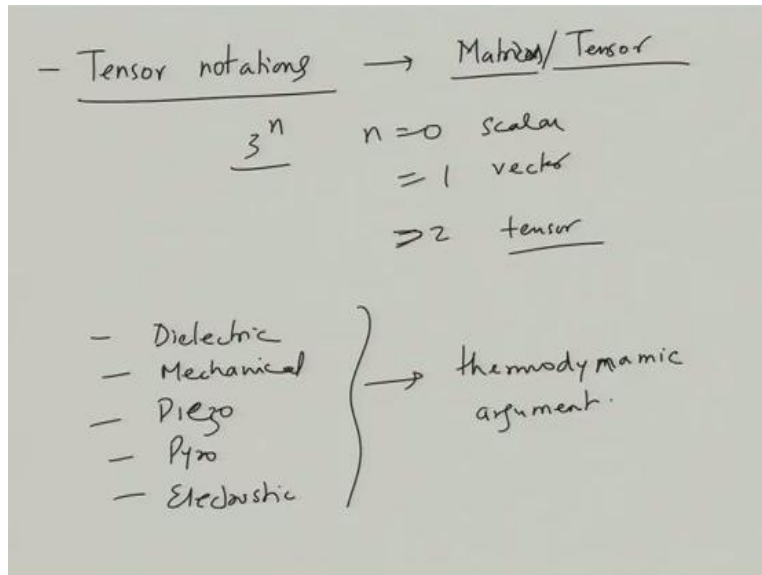 - Tensor notations → Matrices/Tensor
3^n n = 0 scalar
= 1 vector
= 2 tensor
- Dielectric
- Mechanical
- Piezo
- Pyro
→ thermodynamic
argument.